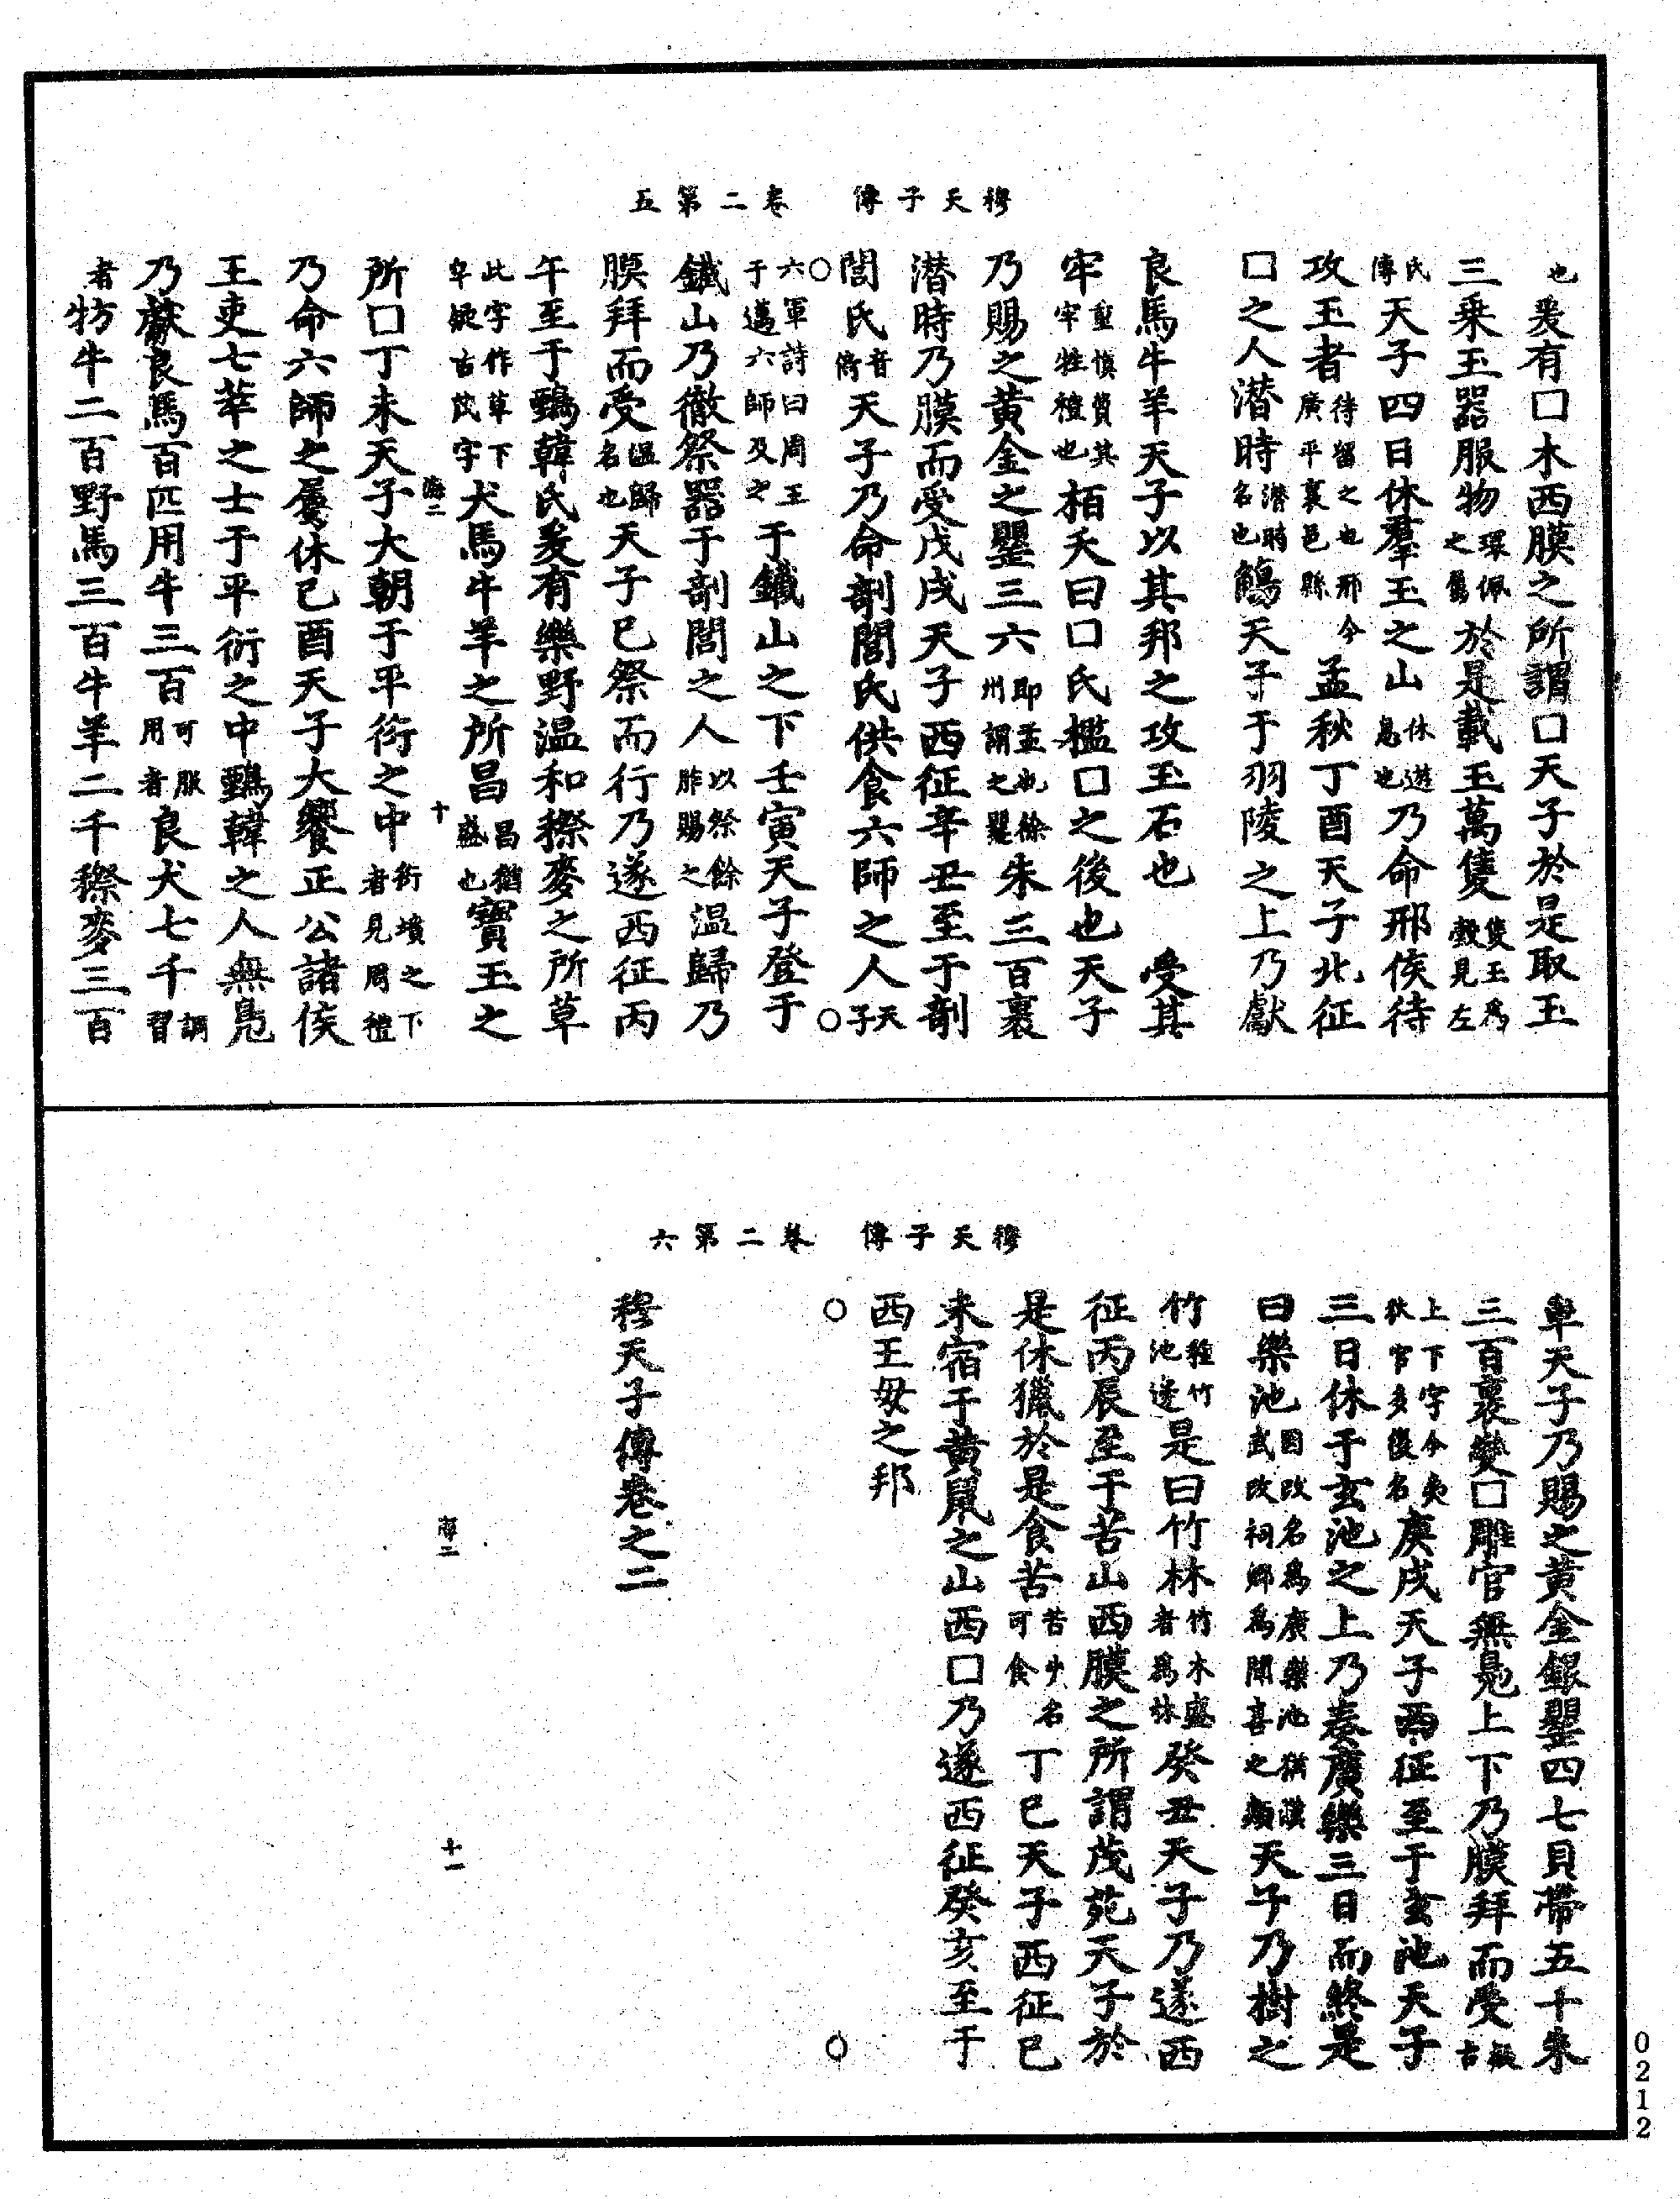 穆天子傳　卷二第五
也爰有口木西膜之所謂口天子於是取玉
三乗玉器服物環佩之屬於是載玉萬隻隻玉爲瑴見左
氏傳天子四日休羣玉之山休遊息也乃命邢侯待
攻玉者待留之也邢今廣平襄邑縣孟秋丁酉天子北征
口之人潜時潜時名也觴天子于羽陵之上乃獻
良馬牛羊天子以其邦之攻玉石也　受其
牢重慎費其牢牲禮也栢夭曰口氏檻口之後也天子
乃賜之黄金之罌三六即盂也徐州謂之罌朱三百裹
潜時乃膜而受戊戌天子西征辛丑至于剞
閭氏音倚天子乃命剞閭氏供食六師之人天子
六軍詩曰周王于邁六師及之于鐵山之下壬寅天子登于
鐵山乃徹祭器于剞閭之人以祭餘胙賜之温歸乃
膜拜而受温歸名也天子已祭而行乃遂西征丙
午至于鄄韓氏爰有樂野温和穄麥之所草
此字作草下皁疑古茂字犬馬牛羊之所昌昌猶盛也寶玉之
海二　十
所口丁未天子大朝于平衍之中衍墳之下者見周禮
乃命六師之屬休己酉天子大饗正公諸侯
王吏七萃之士于平衍之中鄄韓之人無鳧
乃獻良馬百匹用牛三百可服用者良犬七千調習
者牥牛二百野馬三百牛羊二千穄麥三百
穆天子傳　卷二第六
車天子乃賜之黄金銀罌四七貝帶五十朱
三百裹變口雕官無鳧上下乃膜拜而受疑古
上下字今夷狄官多復名庚戌天子西征至于玄池天子
三日休于玄池之上乃奏廣樂三日而終是
曰樂池因改名爲廣樂池猶漢武改祠鄉爲聞喜之類天子乃樹之
竹種竹池邊是曰竹林竹木盛者爲林癸丑天子乃遂西
征丙辰至于苦山西膜之所謂茂苑天子於
是休獵於是食苦苦山名可食丁巳天子西征己
未宿于黄鼠之山西口乃遂西征癸亥至于
西王母之邦
穆天子傳卷之二
海二　十一
0212